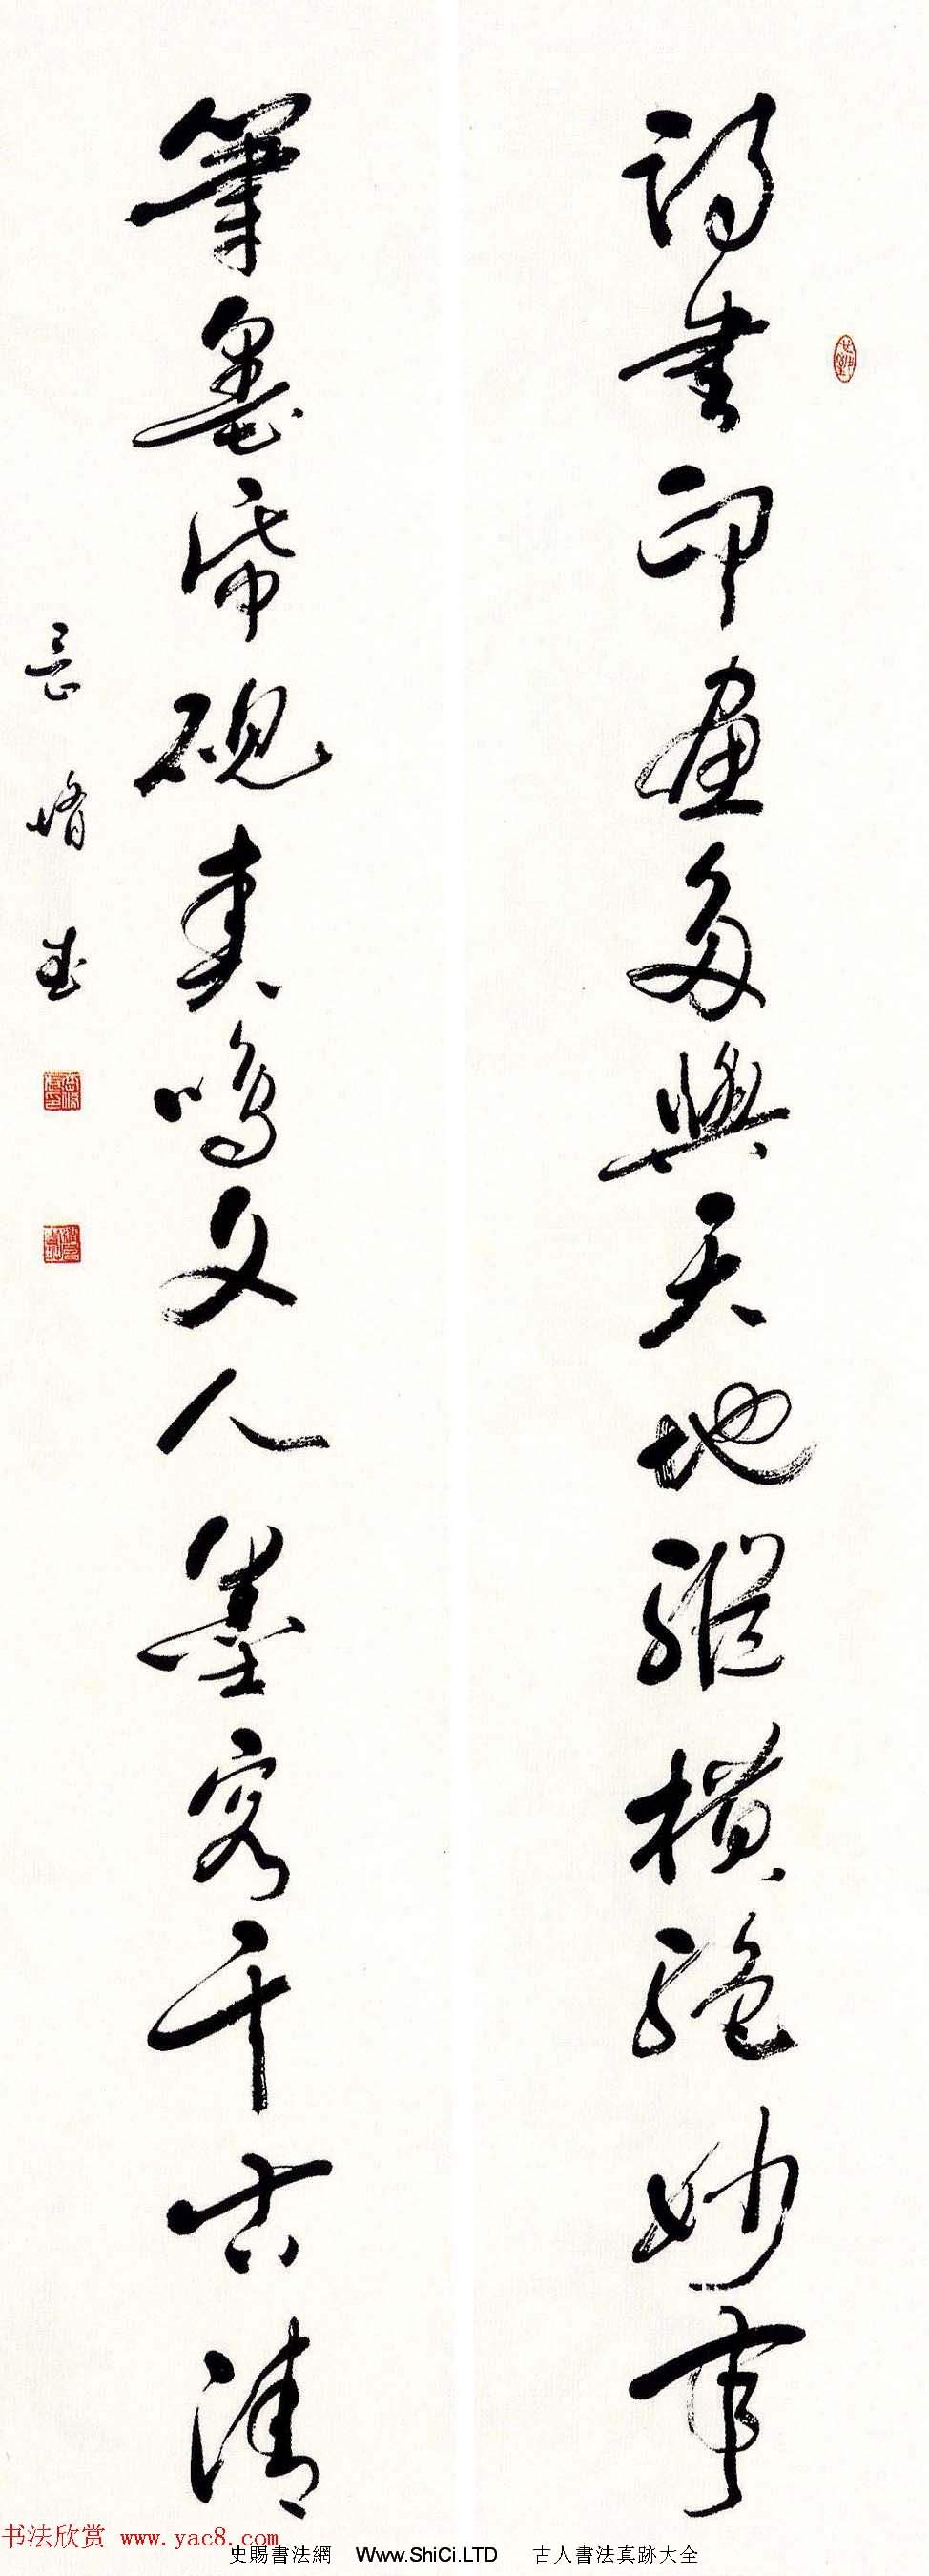 詩書印畫多興天地縱橫絕妙事
筆墨帋硯奏鳴文人墨客千古清
书法欣赏 www.yac8.com
史賜書法網 Www.ShiCi.LTD 古人書法真跡大全